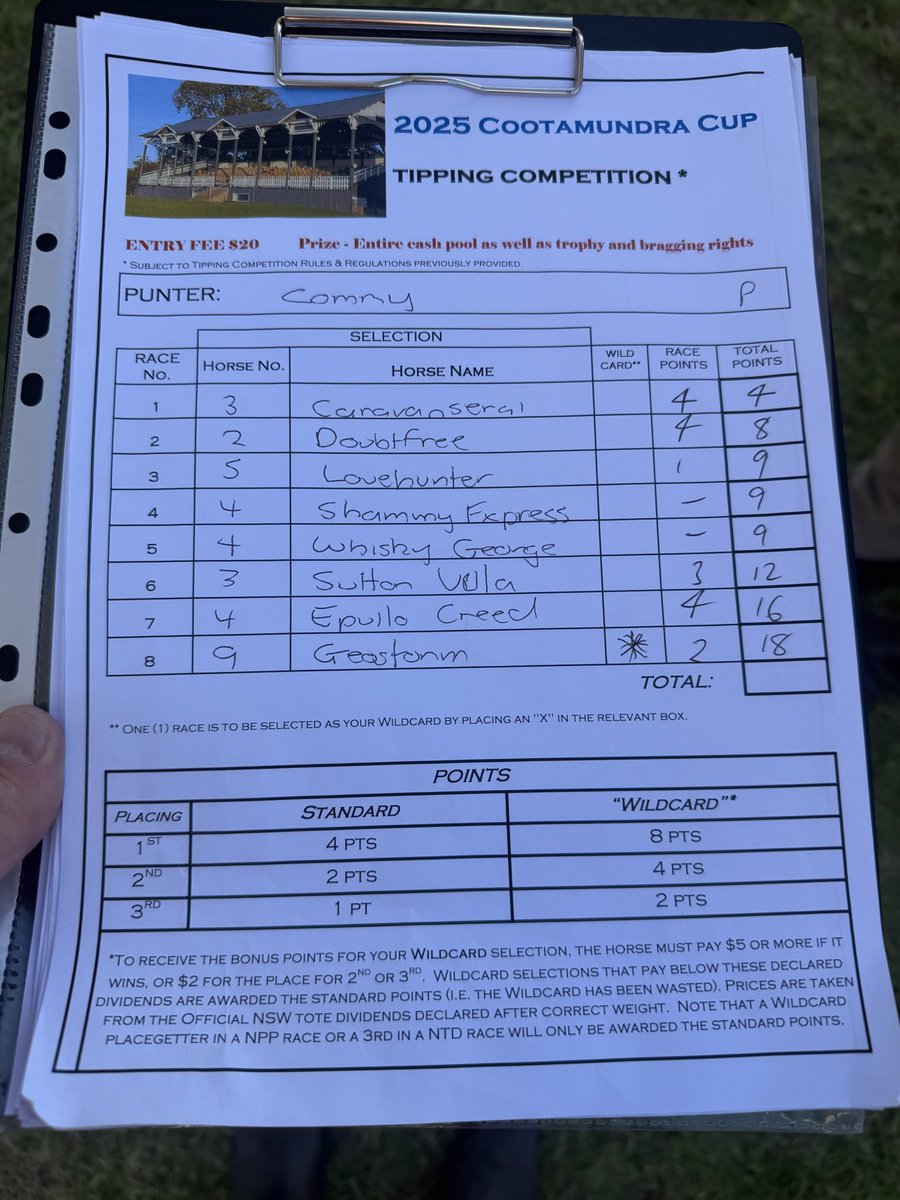 2025 COOTAMUNDRA CUP
TIPPING COMPETITION *
ENTRY FEE $20 Prize - Entire cash pool as well as trophy and bragging rights
* SUBJECT TO TIPPING COMPETITION RULES & REGULATIONS PREVIOUSLY PROVIDED.
PUNTER: Commy P
SELECTION
RACE NO. HORSE NO. HORSE NAME WILD CARD** RACE POINTS TOTAL POINTS
1 3 Caravanserai 4 4
2 2 Doubtfree 4 8
3 5 Lovehunter 1 9
4 4 Shammy Express – 9
5 4 Whisky George – 9
6 3 Sutton Villa 3 12
7 4 Epuilo Creed 4 16
8 9 Geostorm * 2 18
TOTAL:
** ONE (1) RACE IS TO BE SELECTED AS YOUR WILDCARD BY PLACING AN "X" IN THE RELEVANT BOX.
POINTS
PLACING STANDARD "WILDCARD"*
1ST 4 PTS 8 PTS
2ND 2 PTS 4 PTS
3RD 1 PT 2 PTS
*TO RECEIVE THE BONUS POINTS FOR YOUR WILDCARD SELECTION, THE HORSE MUST PAY $5 OR MORE IF IT
WINS, OR $2 FOR THE PLACE FOR 2ND OR 3RD. WILDCARD SELECTIONS THAT PAY BELOW THESE DECLARED
DIVIDENDS ARE AWARDED THE STANDARD POINTS (I.E. THE WILDCARD HAS BEEN WASTED). PRICES ARE TAKEN
FROM THE OFFICIAL NSW TOTE DIVIDENDS DECLARED AFTER CORRECT WEIGHT. NOTE THAT A WILDCARD
PLACEGETTER IN A NPP RACE OR A 3RD IN A NTD RACE WILL ONLY BE AWARDED THE STANDARD POINTS.